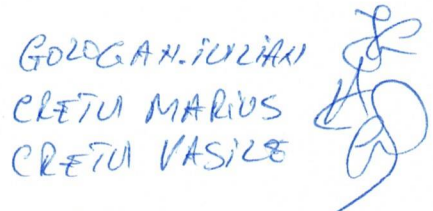 GOLOGAN.IULIAN
CRETU MARIUS
CRETU VASILE